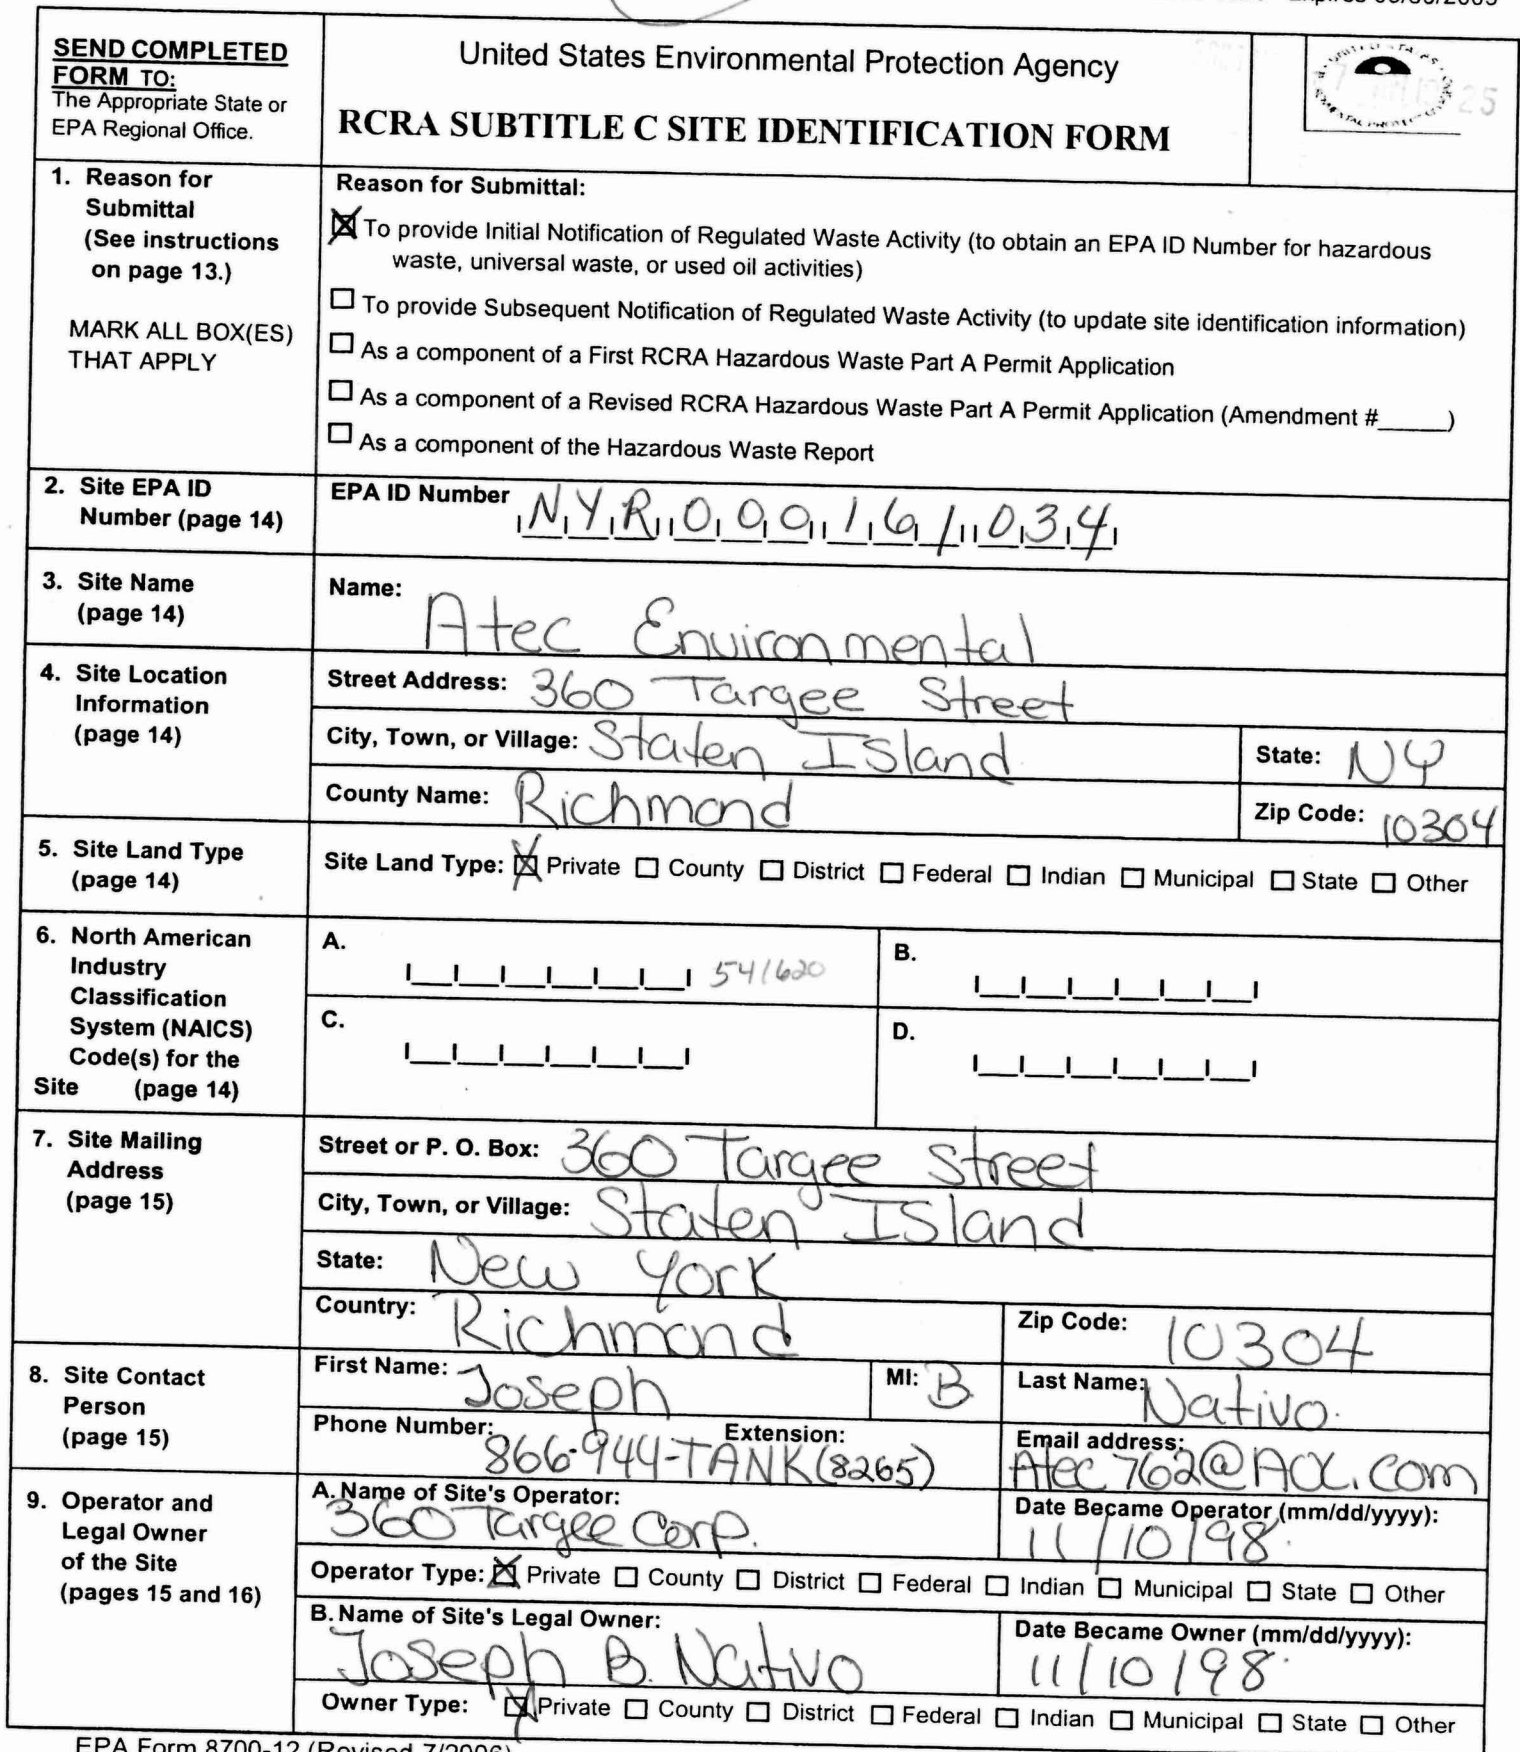 SEND COMPLETED
FORM TO:
The Appropriate State or
EPA Regional Office.
United States Environmental Protection Agency
RCRA SUBTITLE C SITE IDENTIFICATION FORM
1. Reason for
Submittal
(See instructions
on page 13.)
MARK ALL BOX(ES)
THAT APPLY
Reason for Submittal:
☒ To provide Initial Notification of Regulated Waste Activity (to obtain an EPA ID Number for hazardous
waste, universal waste, or used oil activities)
☐ To provide Subsequent Notification of Regulated Waste Activity (to update site identification information)
☐ As a component of a First RCRA Hazardous Waste Part A Permit Application
☐ As a component of a Revised RCRA Hazardous Waste Part A Permit Application (Amendment #_____)
☐ As a component of the Hazardous Waste Report
2. Site EPA ID
Number (page 14)
EPA ID Number NYR 000 161 034
3. Site Name
(page 14)
Name: Atec Environmental
4. Site Location
Information
(page 14)
Street Address: 360 Targee Street
City, Town, or Village: Staten Island
State: NY
County Name: Richmond
Zip Code: 10304
5. Site Land Type
(page 14)
Site Land Type: ☒ Private ☐ County ☐ District ☐ Federal ☐ Indian ☐ Municipal ☐ State ☐ Other
6. North American
Industry
Classification
System (NAICS)
Code(s) for the
Site (page 14)
A. 541620
B.
C.
D.
7. Site Mailing
Address
(page 15)
Street or P. O. Box: 360 Targee Street
City, Town, or Village: Staten Island
State: New York
Country: Richmond
Zip Code: 10304
8. Site Contact
Person
(page 15)
First Name: Joseph
MI: B.
Last Name: Nativo
Phone Number: 866-944-TANK (8265) Extension:
Email address: Atec762@AOL.com
9. Operator and
Legal Owner
of the Site
(pages 15 and 16)
A. Name of Site's Operator:
360 Targee Corp.
Date Became Operator (mm/dd/yyyy):
11/10/98
Operator Type: ☒ Private ☐ County ☐ District ☐ Federal ☐ Indian ☐ Municipal ☐ State ☐ Other
B. Name of Site's Legal Owner:
Joseph B. Nativo
Date Became Owner (mm/dd/yyyy):
11/10/98
Owner Type: ☒ Private ☐ County ☐ District ☐ Federal ☐ Indian ☐ Municipal ☐ State ☐ Other
EPA Form 8700-12 (Revised 7/2006)